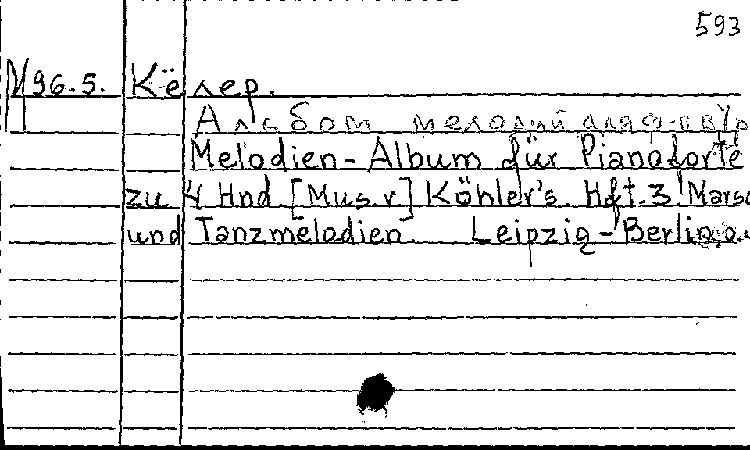 593
М96.5. Кёлер.
Альбом мелодий для ф-но в/о
Melodien-Album für Pianoforte
zu 4 Hnd [Mus.v] Köhler's. Hft.3: Marsc
und Tanzmelodien. Leipzig-Berlin,o.